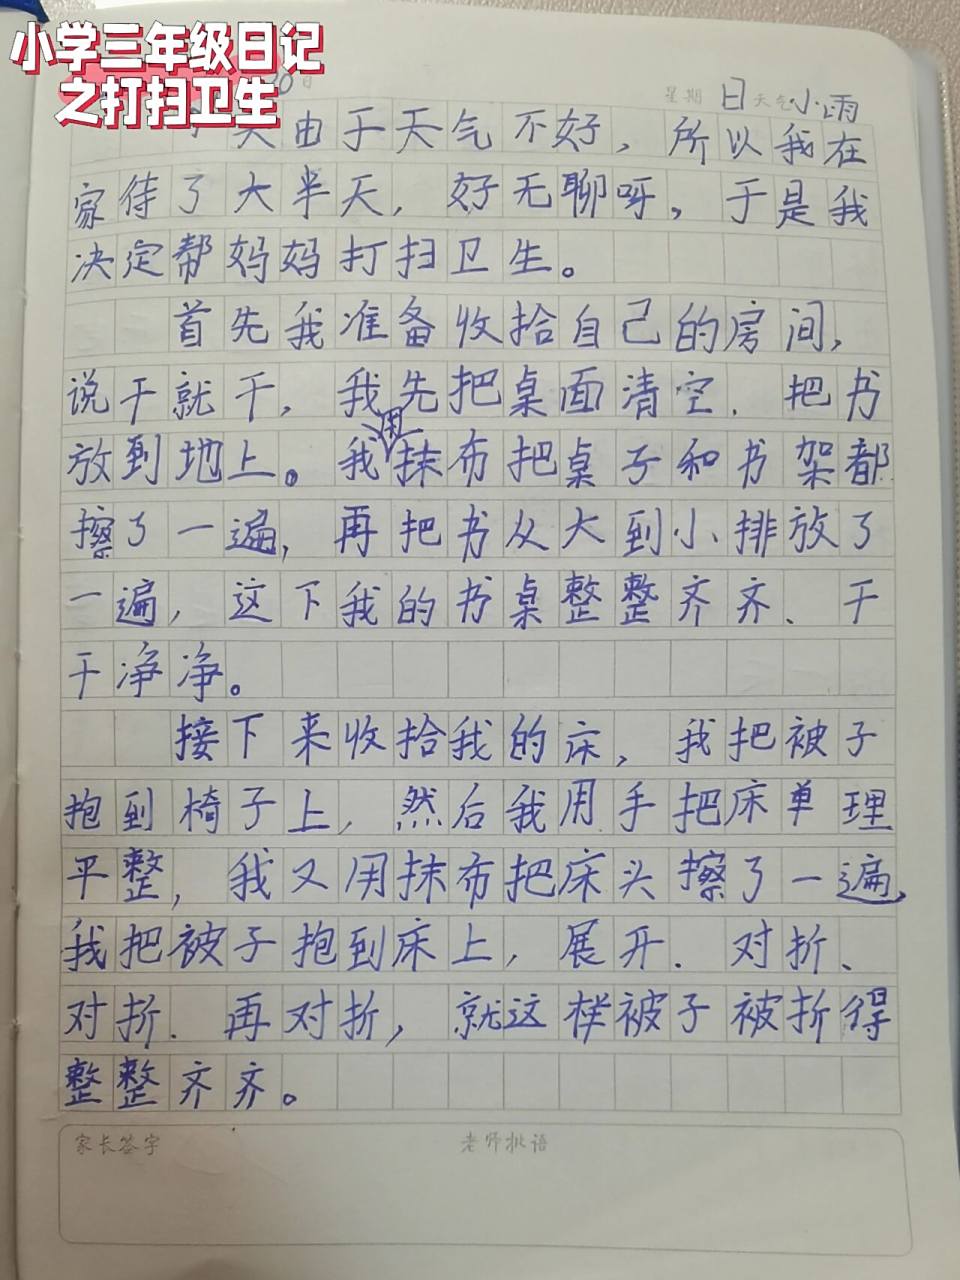 小学三年级日记
之打扫卫生
星期 日 天气 小雨
天由于天气不好，所以我在
家待了大半天，好无聊呀，于是我
决定帮妈妈打扫卫生。
首先我准备收拾自己的房间，
说干就干，我先把桌面清空．把书
放到地上。我用抹布把桌子和书架都
擦了一遍，再把书从大到小排放了
一遍，这下我的书桌整整齐齐、干
干净净。
接下来收拾我的床，我把被子
抱到椅子上，然后我用手把床单理
平整，我又用抹布把床头擦了一遍，
我把被子抱到床上，展开．对折、
对折．再对折，就这样被子被折得
整整齐齐。
家长签字 老师批语